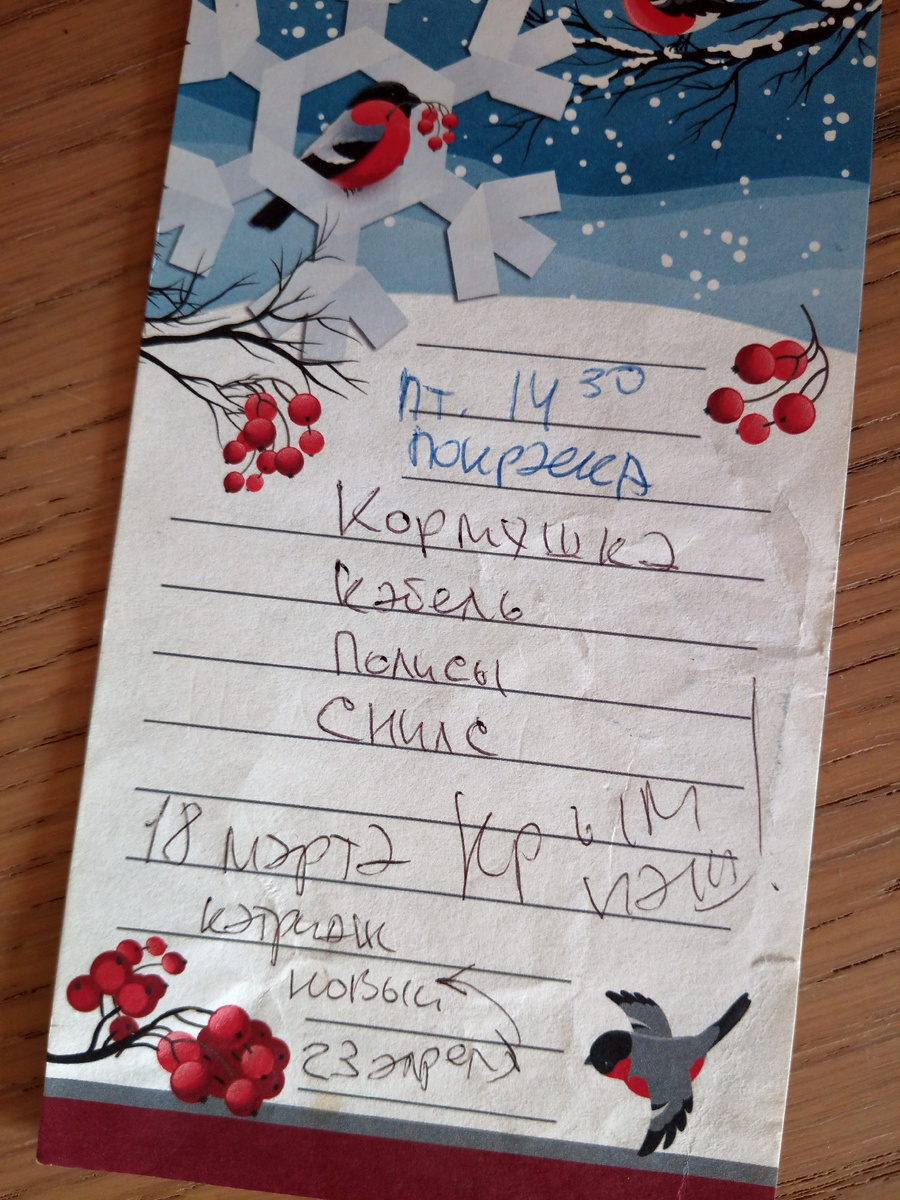 пт. 14 30
покраска
Кормушка
Кабель
Полисы
Снилс
18 марта Крым
наш.
катридж
новый
23 апреля